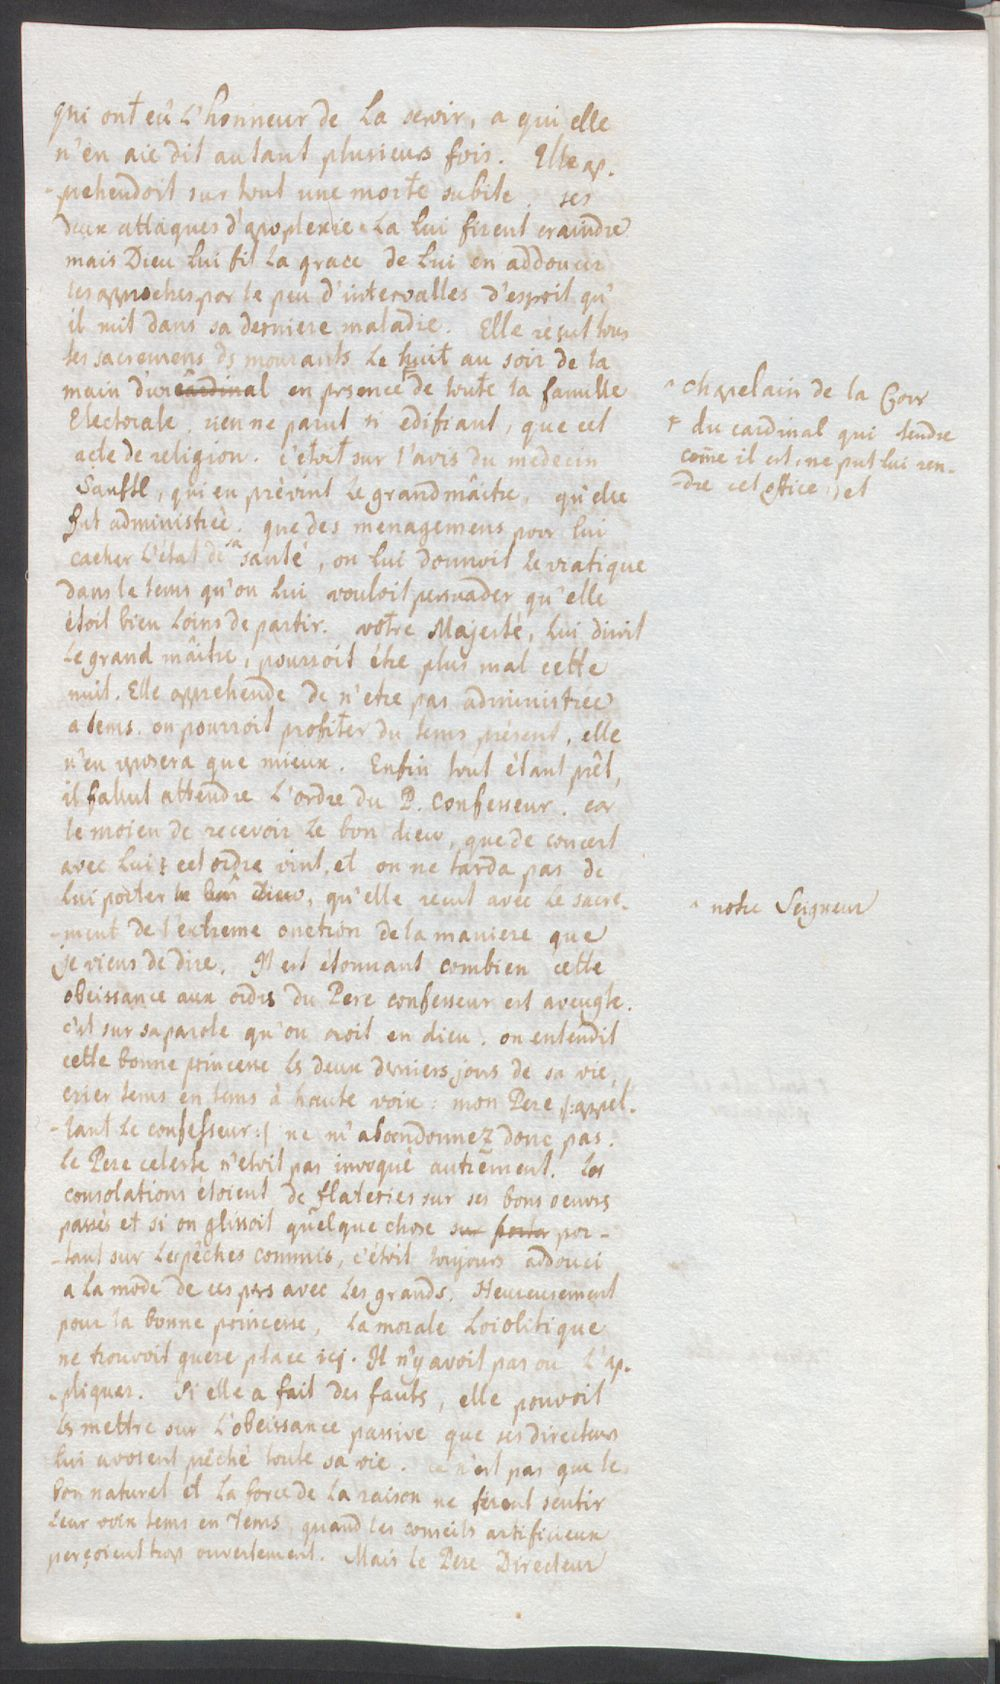 qui ont eû L'honneur de La servir, a qui elle
n'en aie dit autant plusieurs fois. Elle ap-
-prehendoit sur tout une morte subite. ses
deux attaques d'apoplexie La lui firent craindre
mais Dieu lui fit La grace de lui en addoucir
les approches par le peu d'intervalles d'esprit qu'
il mit dans sa derniere maladie. Elle reçut tous
les sacremens ds mourants Le huit au soir de la
main d'un cardinal en prsence de toute la famille
Electorale. rien ne parut si edifiant, que cet
acte de religion. c'etoit sur l'avis du medecin
Sanfftl, qui en prévint Le grand mâitre, qu'elle
fut administrée. que des menagemens pour lui
cacher L'état de sa santé, on lui donnoit Le viatique
dans le tems qu'on lui vouloit persuader qu'elle
étoit bien Loins de partir. votre Majesté, lui disoit
Le grand mâitre, pourroit étre plus mal cette
nuit. Elle apprehende de n'etre pas administrée
a tems. on pourroit profiter du tems présent, elle
n'en reposera que mieux. Enfin tout étant prêt,
il fallut attendre L'ordre du P. Confesseur. car
le moien de recevoir Le bon dieu, que de concert
avec Lui? cet ordre vint, et on ne tarda pas de
lui porter le bon dieu, qu'elle reçut avec Le sacre-
-ment de l'extreme onction de la maniere que
je viens de dire. Il est étonnant combien cette
obeissance aux ordrs du Pere confesseur est aveugle.
c'est sur sa parole qu'on croit en dieu. on entendit
cette bonne princesse ls deux derniers jours de sa vie,
crier tems en tems à haute voix: mon Pere /:appel-
-lant Le confesseur:/ ne m'abandonnez donc pas.
Le Pere celeste n'etoit pas invoqué autrement. Les
consolations étoient de flateries sur ses bons oeuvrs
passés et si on glissoit quelque chose sur porta por-
-tant sur Les pêches commis, c'étoit toujours addouci
a la mode de ces prs avec Les grands. Heureusement
pour la bonne princesse, La morale Loiolitique
ne trouvoit guere place ici. Il n'y avoit pas ou L'ap-
-pliquer. Si elle a fait des fauts, elle pouvoit
ls mettre sur L'obeissance passive que ses directeurs
lui avoient prêché toute sa vie. ce n'est pas que le
bon naturel et La force de La raison ne firent sentir
leur voix tems en tems, quand les conseils artificieux
perçoient trop ouvertement. Mais le Pere Directeur
^ chapelain de la Cour
+ du cardinal qui tendre
come il est, ne put lui ren-
-dre cet office, et
^ notre Seigneur